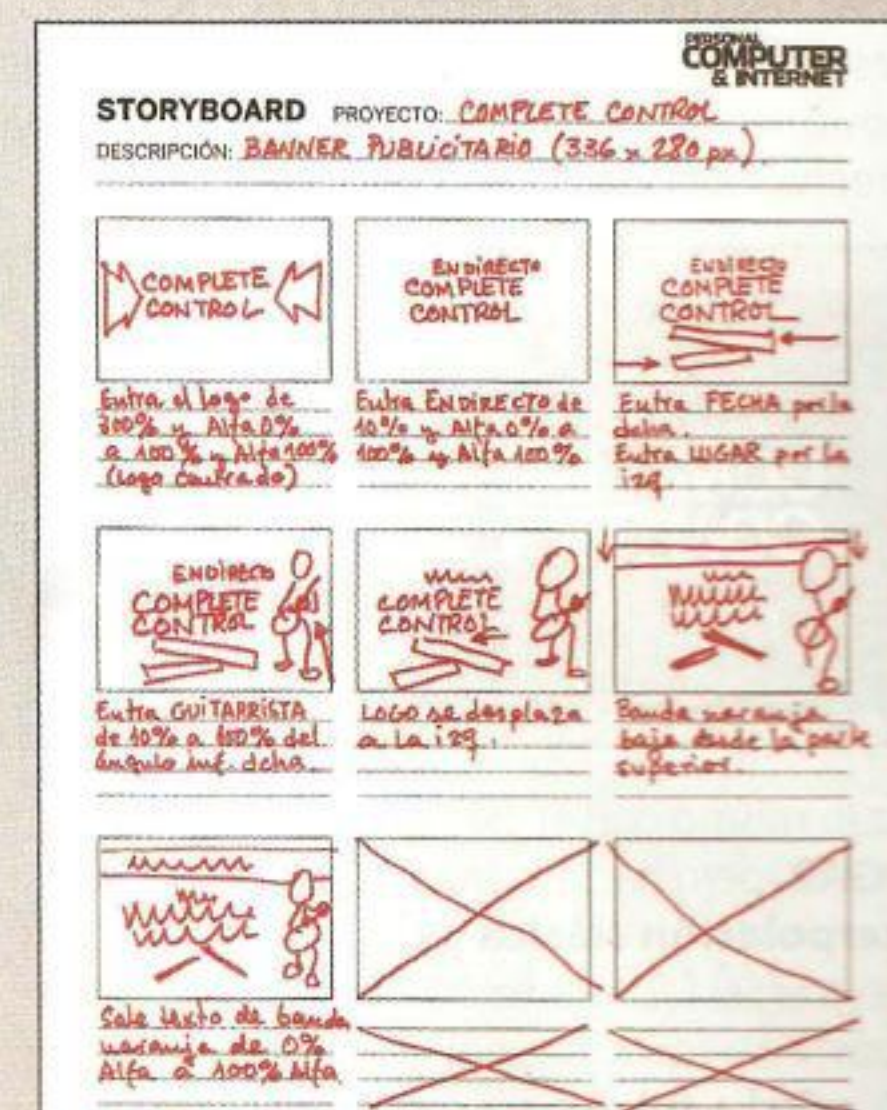 PERSONAL
COMPUTER
& INTERNET
STORYBOARD PROYECTO: COMPLETE CONTROL
DESCRIPCIÓN: BANNER PUBLICITARIO (336 x 280 px)
COMPLETE
CONTROL
Entra el logo de
300% y Alfa 0%
a 100% y Alfa 100%
(Logo centrado)
EN DIRECTO
COMPLETE
CONTROL
Entra EN DIRECTO de
10% y Alfa 0% a
100% y Alfa 100%
EN DIRECTO
COMPLETE
CONTROL
Entra FECHA por la
dcha.
Entra LUGAR por la
izq.
EN DIRECTO
COMPLETE
CONTROL
Entra GUITARRISTA
de 10% a 100% del
ángulo inf. dcha.
COMPLETE
CONTROL
LOGO se desplaza
a la izq.
Banda naranja
baja desde la parte
superior.
Sale texto de banda
naranja de 0%
Alfa a 100% Alfa